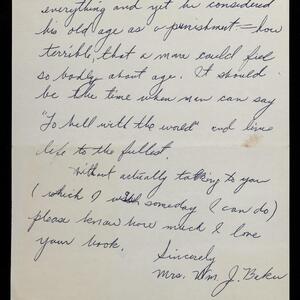 everything and yet he considered
his old age as a punishment - how
terrible, that a man could feel
so badly about age. It should
be the time when men can say
"To hell with the world" and live
life to the fullest.
Without actually talking to you
(which I wish someday I can do)
please know how much I love
your book.
Sincerely
Mrs. Wm. J. Baker